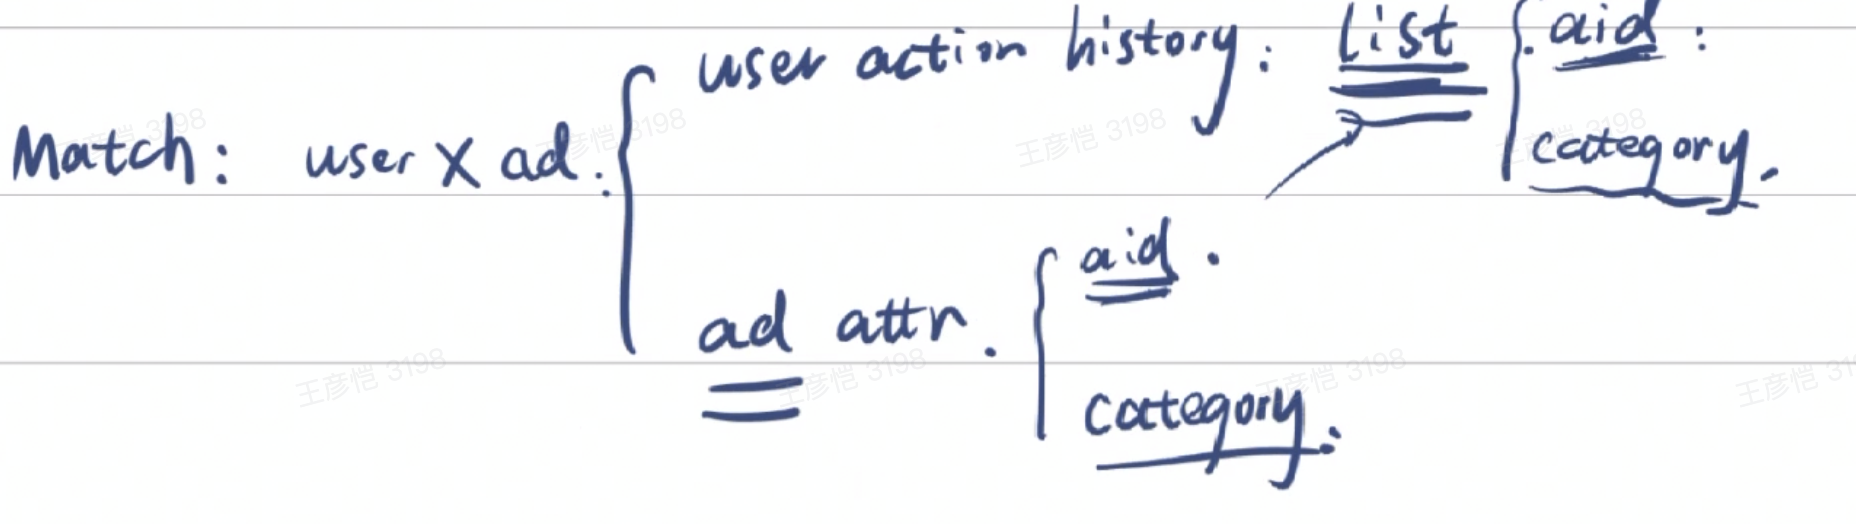 Match: user X ad: { user action history: list { aid:
category.
ad attr. { aid.
category:
王彦恺 3198
王彦恺 3198
王彦恺 3198
王彦恺 3198
王彦恺 3198
王彦恺 3198
王彦恺 3198
王彦恺 31